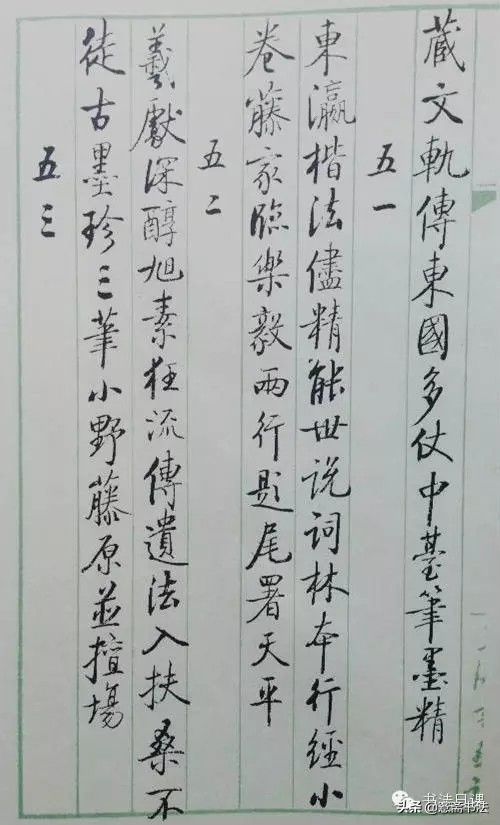 蔵文軌傳東國多仗中臺筆墨精
五一
東瀛楷法儘精能世说詞林本行經小
卷藤家臨樂毅兩行题尾署天平
五二
羲獻深醇旭素狂流傳遺法入扶桑不
徒古墨珍三筆小野藤原並擅場
五三
书法日课
头条@悫斋书法